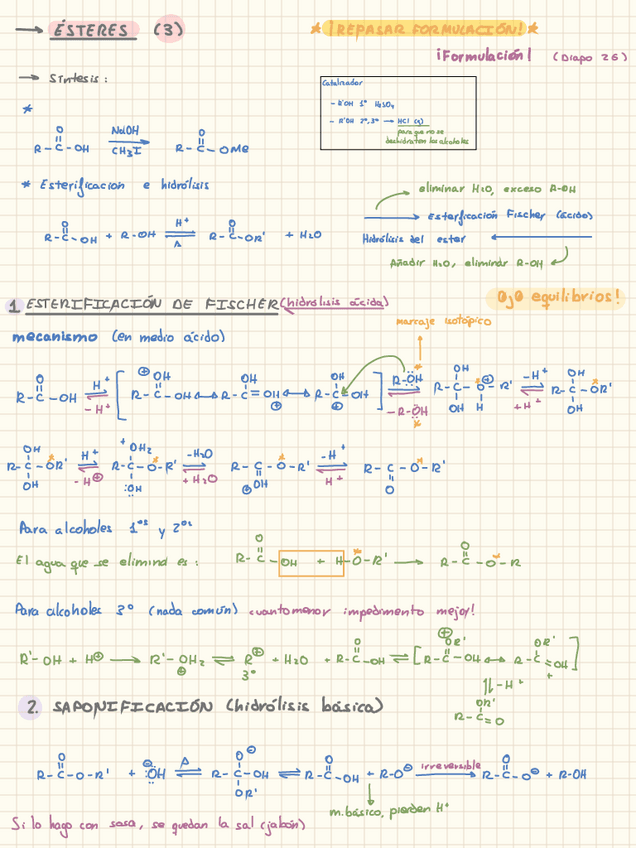 → ÉSTERES (3)
* ¡REPASAR FORMULACIÓN! *
¡Formulación! (Diapo 26)
→ Síntesis:
Catalizador
- R'OH 1º H₂SO₄
- R'OH 2º, 3º → HCl (g)
para que no se
deshidraten los alcoholes
*
R-C(=O)-OH NaOH / CH₃I → R-C(=O)-OMe
* Esterificación e hidrólisis
R-C(=O)-OH + R-OH ⇌ H⁺ / Δ R-C(=O)-OR' + H₂O
eliminar H₂O, exceso R-OH
→ Esterificación Fischer (ácido)
Hidrólisis del ester ←
Añadir H₂O, eliminar R-OH
1 ESTERIFICACIÓN DE FISCHER (hidrólisis ácida)
OJO equilibrios!
marcaje isotópico
mecanismo (en medio ácido)
R-C(=O)-OH ⇌ H⁺ / -H⁺ [R-C(=⊕OH)-OH ↔ R-C(OH)=OH⊕ ↔ R-C⊕(OH)-OH] ⇌ R-ÖH* / -R-ÖH* R-C(OH)(OH)-O*⊕(H)-R' ⇌ -H⁺ / +H⁺ R-C(OH)(OH)-O*R'
R-C(OH)(OH)-O*R' ⇌ H⁺ / -H⊕ R-C(⁺OH₂)(:OH)-O*-R' ⇌ -H₂O / +H₂O R-C(=⊕OH)-O*-R' ⇌ -H⁺ / H⁺ R-C(=O)-O*-R'
Para alcoholes 1ºˢ y 2ºˢ
El agua que se elimina es: R-C(=O)-OH + H-O*-R' → R-C(=O)-O*-R
Para alcoholes 3º (nada común) cuanto menor impedimento mejor!
R'-OH + H⊕ → R'-OH₂⊕ ⇌ R⊕ + H₂O + R-C(=O)-OH ⇌ [R-C(=⊕OR')-OH ↔ R-C(OR')=OH⁺]
3º
⇅ -H⁺
R-C(OR')=O
2. SAPONIFICACIÓN (hidrólisis básica)
R-C(=O)-O-R' + ⊖:ÖH ⇌ Δ R-C(O⊖)(OR')-OH ⇌ R-C(=O)-OH + R-O⊖ irreversible → R-C(=O)-O⊖ + R-OH
m.básico, pierden H⁺
Si lo hago con sosa, se quedan la sal (jabón)